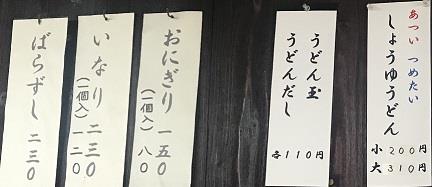 あつい つめたい
しょうゆうどん
小 200円
大 310円
うどん玉
うどんだし
各110円
おにぎり 一五〇
(一個入) 八〇
いなり 二三〇
(一個入) 一二〇
ばらずし 二三〇